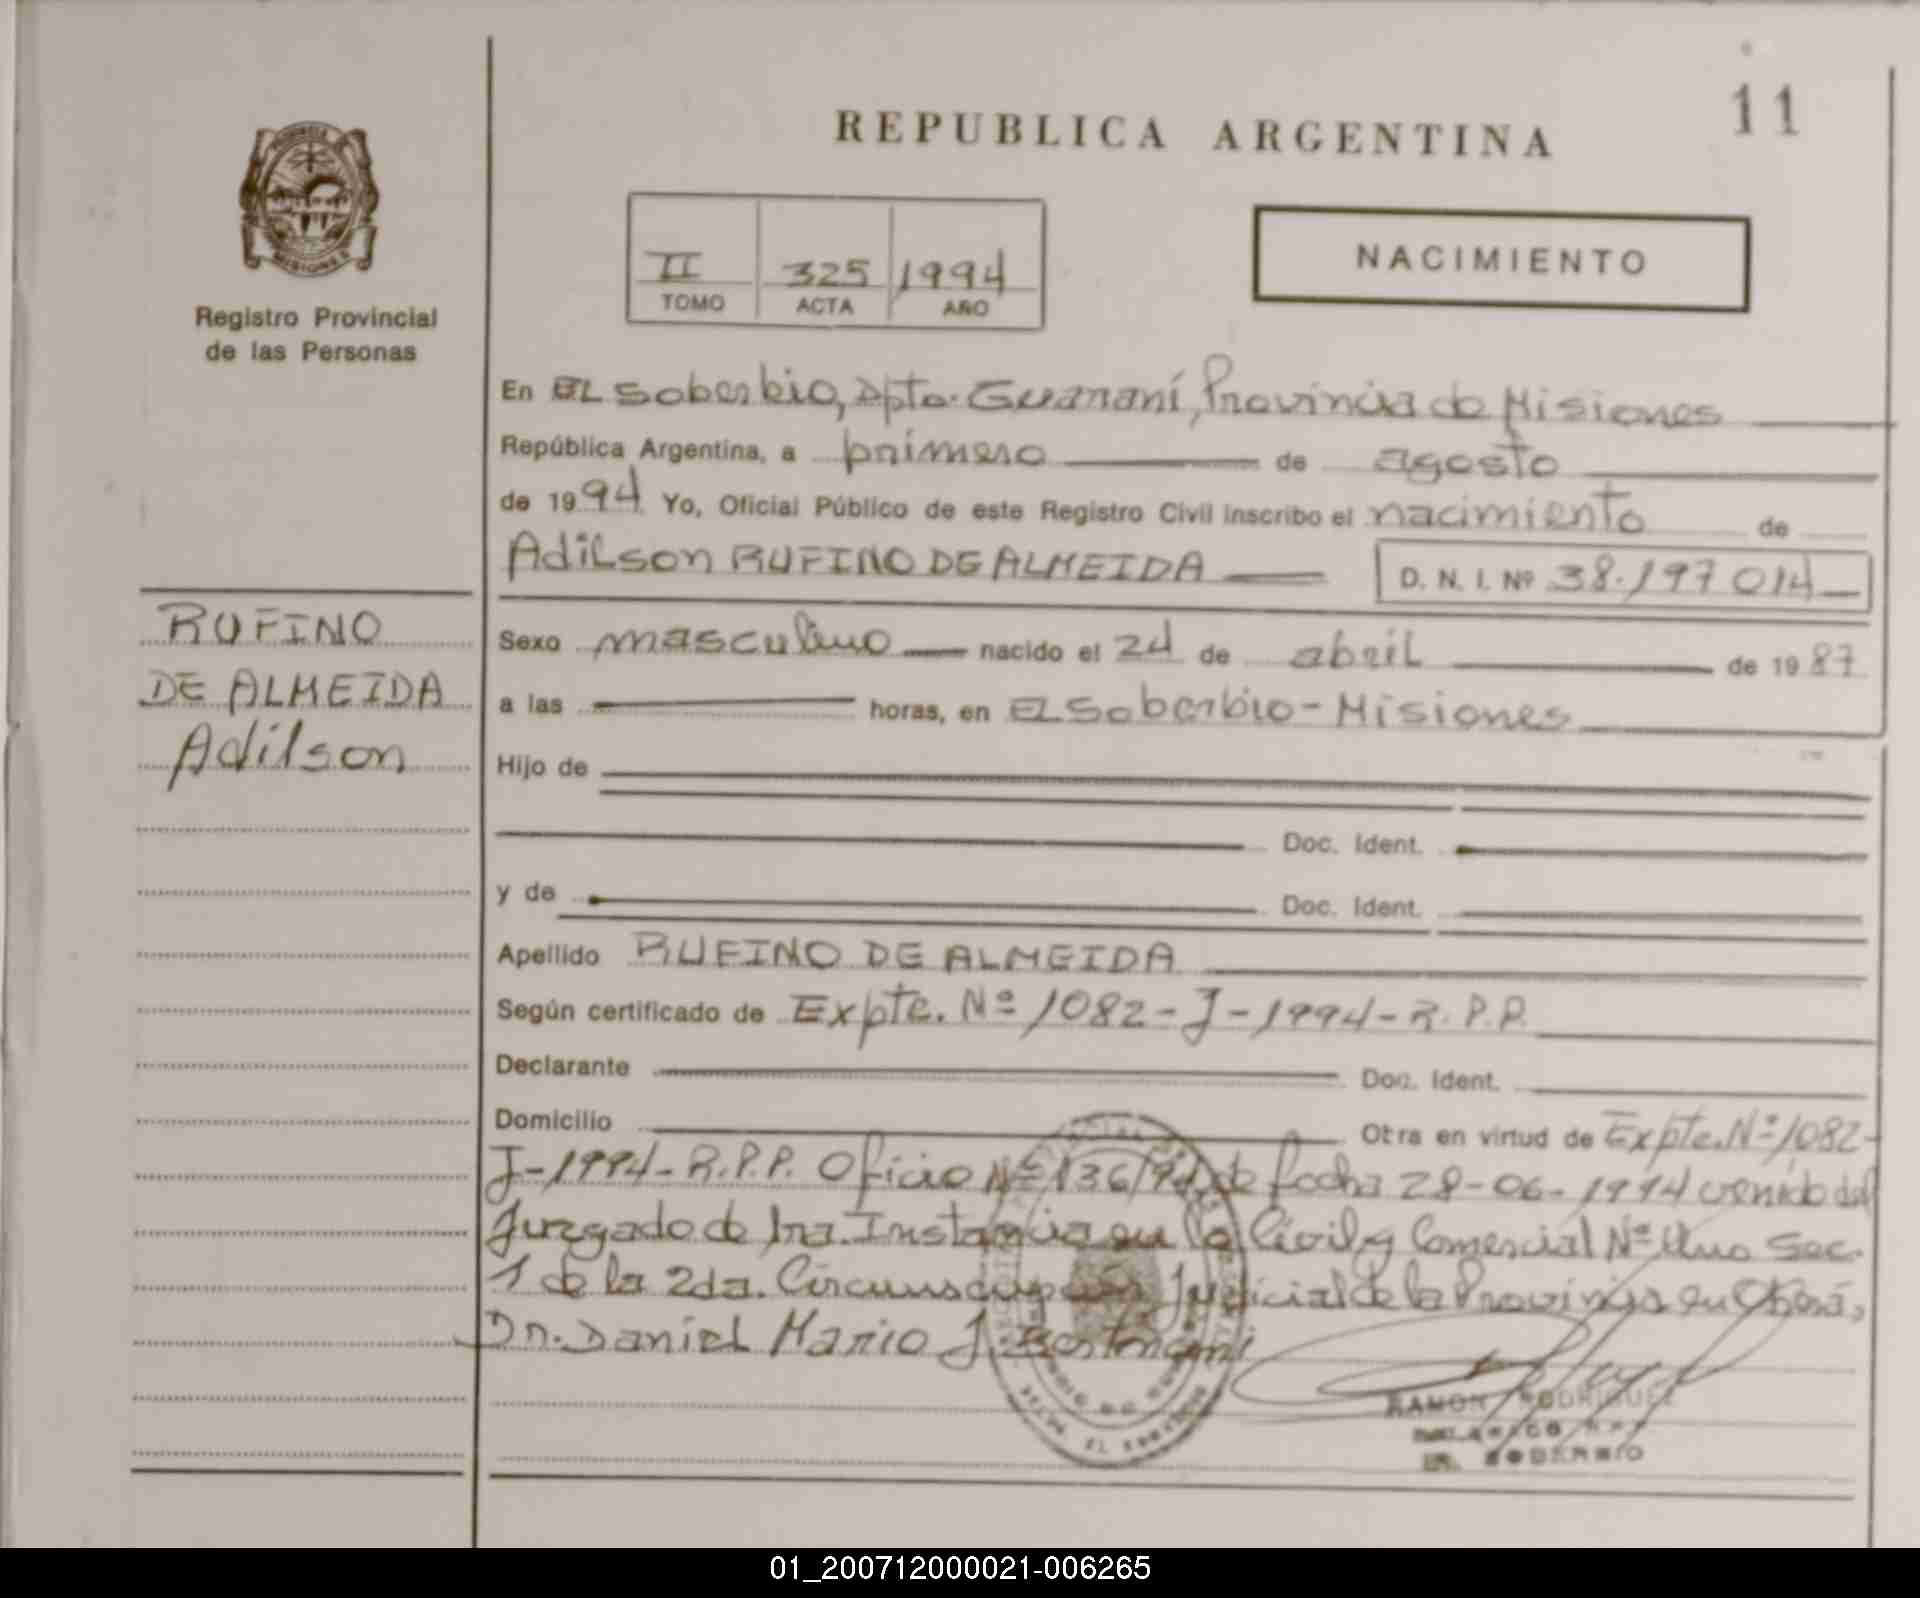 11
REPUBLICA ARGENTINA
MISIONES
Registro Provincial
de las Personas
II 325 1994
TOMO ACTA AÑO
NACIMIENTO
En EL Soberbio, Dpto. Guaraní, Provincia de Misiones
República Argentina, a primero de agosto
de 1994 Yo, Oficial Público de este Registro Civil inscribo el nacimiento de
Adilson RUFINO DE ALMEIDA D. N. I. Nº 38.197 014
RUFINO
DE ALMEIDA
Adilson
Sexo masculino nacido el 24 de abril de 1987
a las horas, en EL Soberbio - Misiones
Hijo de
Doc. Ident.
y de Doc. Ident.
Apellido RUFINO DE ALMEIDA
Según certificado de Expte. Nº 1082-J-1994-R.P.P.
Declarante Doc. Ident.
Domicilio Otra en virtud de Expte. Nº 1082-
J-1994-R.P.P. Oficio Nº 136/94 de fecha 28-06-1994 venido del
Juzgado de 1ra. Instancia en lo Civil y Comercial Nº Uno Sec.
1 de la 2da. Circunscripción Judicial de la Provincia en Oberá,
Dr. Daniel Mario J.
RAMON RODRIGUEZ
EL SOBERBIO
01_200712000021-006265